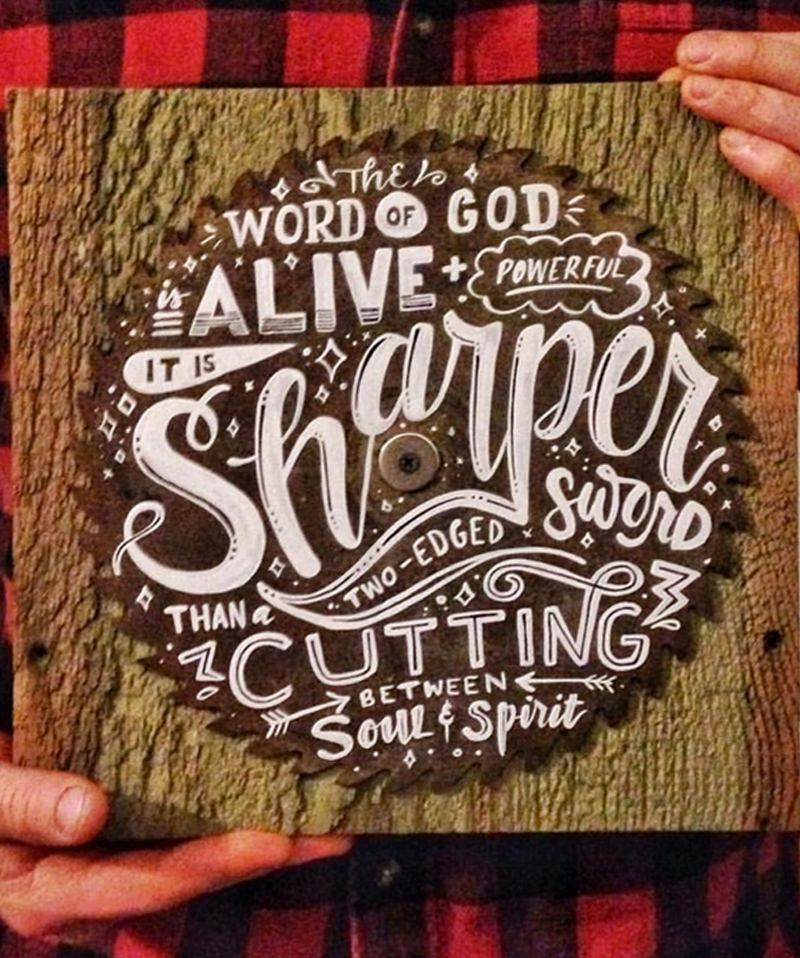 The
WORD OF GOD
is ALIVE + POWERFUL
IT IS
Sharper
THAN a TWO-EDGED sword
CUTTING
BETWEEN
Soul & Spirit